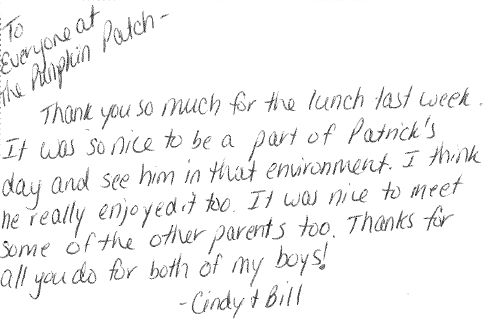 To
Everyone at
the Pumpkin Patch -
Thank you so much for the lunch last week.
It was so nice to be a part of Patrick's
day and see him in that environment. I think
he really enjoyed it too. It was nice to meet
some of the other parents too. Thanks for
all you do for both of my boys!
- Cindy + Bill